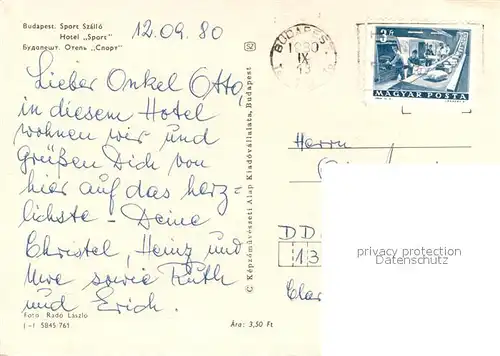 Budapest. Sport Szálló
Hotel „Sport"
Будапешт. Отель „Спорт"
12.09.80
Lieber Onkel Otto,
in diesem Hotel
wohnen wir und
Grüßen Dich von
hier auf das herz-
lichste – Deine
Christel, Heinz und
Uwe sowie Ruth
und Erich.
Foto: Radó László
(–) 5845 761
Ára: 3,50 Ft
© Képzőművészeti Alap Kiadóvállalata, Budapest
SZ
BUDAPEST
1980
IX
13
3 Ft
MAGYAR POSTA
Herrn
DD
13
privacy protection
Datenschutz